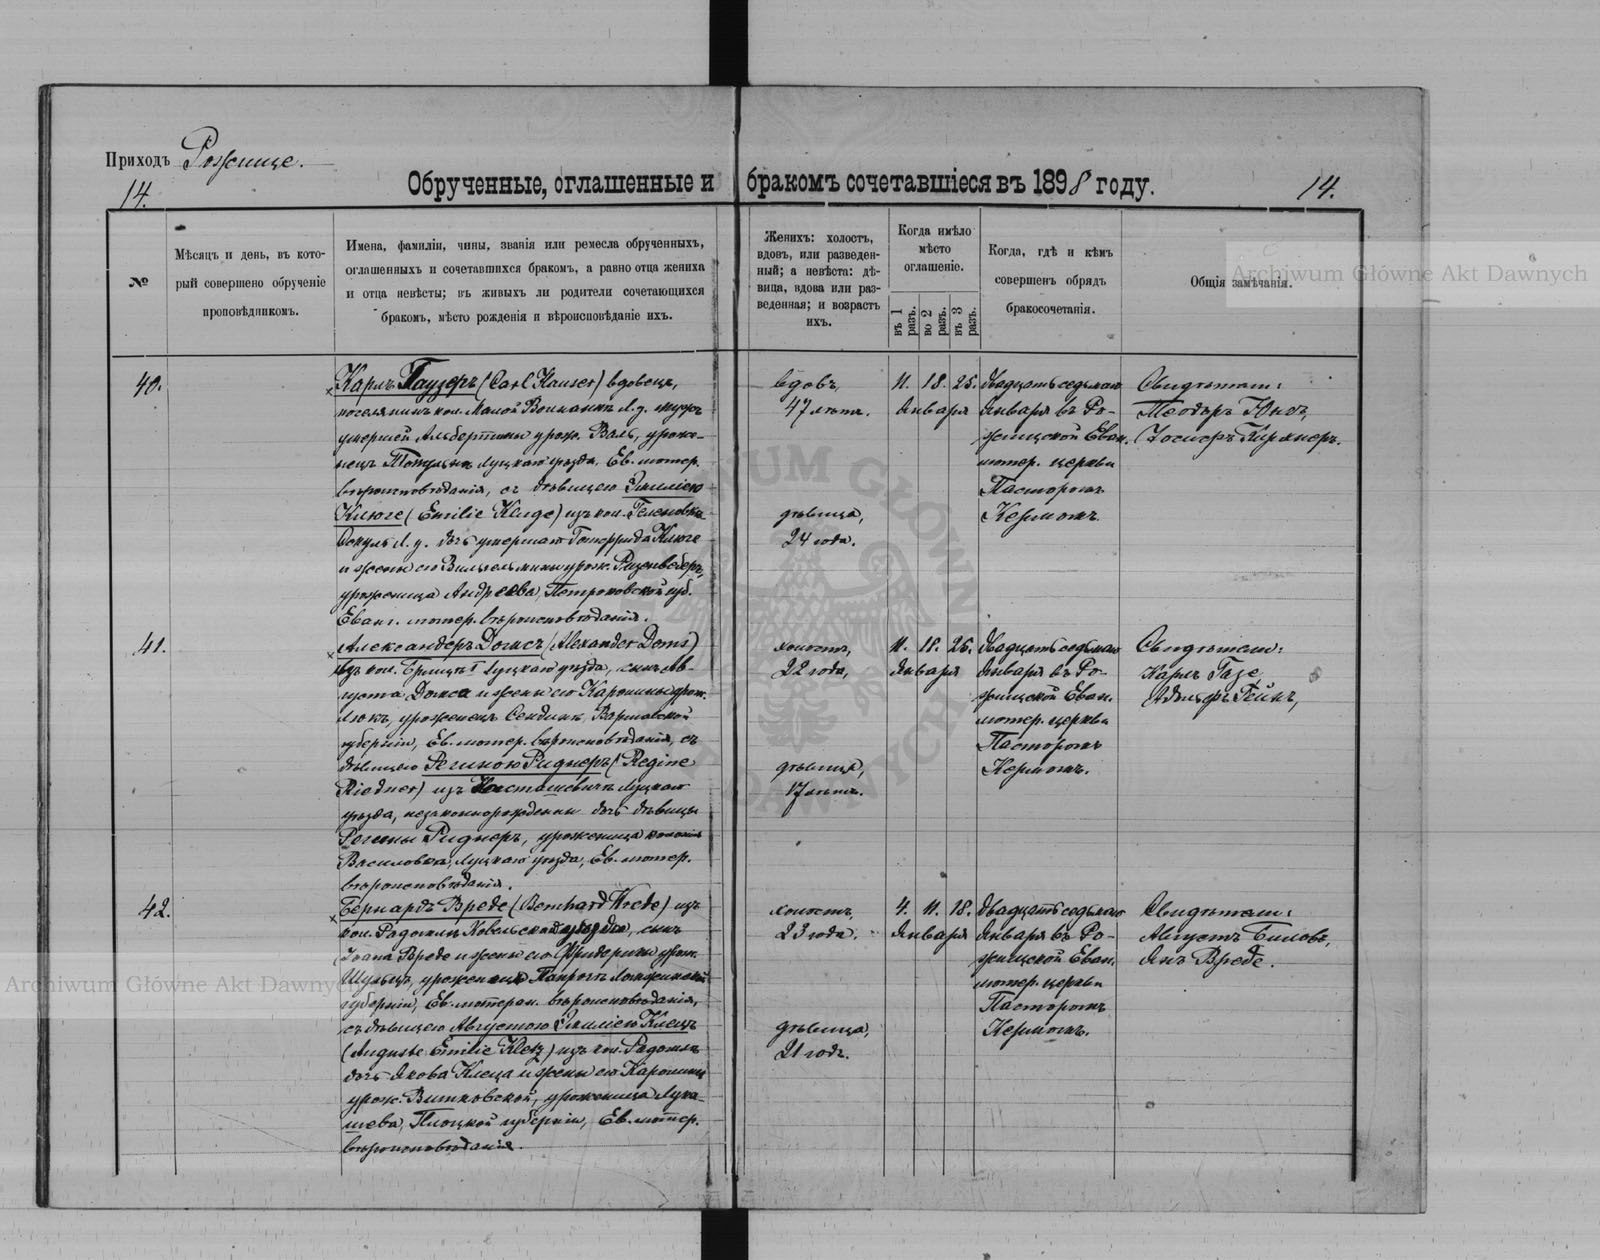 Приходъ Рожище.
14.
Обрученные, оглашенные и бракомъ сочетавшіеся въ 1898 году.
14.
№
Мѣсяцъ и день, въ кото-
рый совершено обрученіе
проповѣдникомъ.
Имена, фамиліи, чины, званія или ремесла обрученныхъ,
оглашенныхъ и сочетавшихся бракомъ, а равно отца жениха
и отца невѣсты; въ живыхъ ли родители сочетающихся
бракомъ, мѣсто рожденія и вѣроисповѣданіе ихъ.
Женихъ: холостъ,
вдовъ, или разведен-
ный; а невѣста: дѣ-
вица, вдова или раз-
веденная; и возрастъ
ихъ.
Когда имѣло
мѣсто
оглашеніе.
въ 1 разъ.
во 2 разъ.
въ 3 разъ.
Когда, гдѣ и кѣмъ
совершенъ обрядъ
бракосочетанія.
Общія замѣчанія.
Archiwum Główne Akt Dawnych
40.
Карлъ Гаузеръ (Carl Hauser) вдовецъ,
поселянинъ кол. Малой Л. у. мужъ
умершей Альбертины урож. Валь, уроже-
нецъ Луцкаго уѣзда, Ев. лютер.
вѣроисповѣданія, съ дѣвицею Эмиліею
Клюге (Emilie Kluge) изъ кол. Геленовка
Л. у. дочь умершаго Готфрида Клюге
и жены его Вильгельмины урож.
уроженица Петроковской губ.
Еванг. лютер. вѣроисповѣданія.
вдовъ,
47 лѣтъ.
дѣвица,
24 года.
11. 18. 25.
Января
Двадцать седьмаго
Января въ Ро-
жищской Еван.
лютер. церкви
Пасторомъ
Кермомъ.
Свидѣтели:
Теодоръ
Іосифъ Кирхнеръ.
41.
Александеръ Домсъ (Alexander Doms)
изъ кол. Луцкаго уѣзда, сынъ Ав-
густа Домса и жены его Каролины урож.
Люкъ, уроженецъ Варшавской
губерніи, Ев. лютер. вѣроисповѣданія, съ
дѣвицею Региною Риднеръ (Regine
Riedner) изъ Луцкаго
уѣзда, незаконнорожденны дочь дѣвицы
Регины Риднеръ, уроженица колоніи
Василовка, Луцкаго уѣзда, Ев. лютер.
вѣроисповѣданія.
холостъ,
22 года,
дѣвица,
17 лѣтъ.
11. 18. 25.
Января
Двадцать седьмаго
Января въ Ро-
жищской Еван.
лютер. церкви
Пасторомъ
Кермомъ.
Свидѣтели:
Карлъ Газе,
Адольфъ Гейнъ,
42.
Бернардъ Вреде (Bernhard Wrede) изъ
кол. Радомль Ковельскаго уѣзда, сынъ
Ивана Вреде и жены его Фридерики урож.
Шульцъ, уроженецъ
губерніи, Ев. лютеран. вѣроисповѣданія,
съ дѣвицею Августою Эмиліею Клецъ
(Auguste Emilie Kletz) изъ кол. Радомль
дочь Якова Клеца и жены его Каролины
урож. Витковской, уроженица Лука-
шева, Плоцкой губерніи, Ев. лютер.
вѣроисповѣданія.
холостъ,
23 года.
дѣвица,
21 годъ.
4. 11. 18.
Января
Двадцать седьмаго
Января въ Ро-
жищской Еван.
лютер. церкви
Пасторомъ
Кермомъ.
Свидѣтели:
Августъ Биловъ,
Янъ Вреде.
Archiwum Główne Akt Dawnych